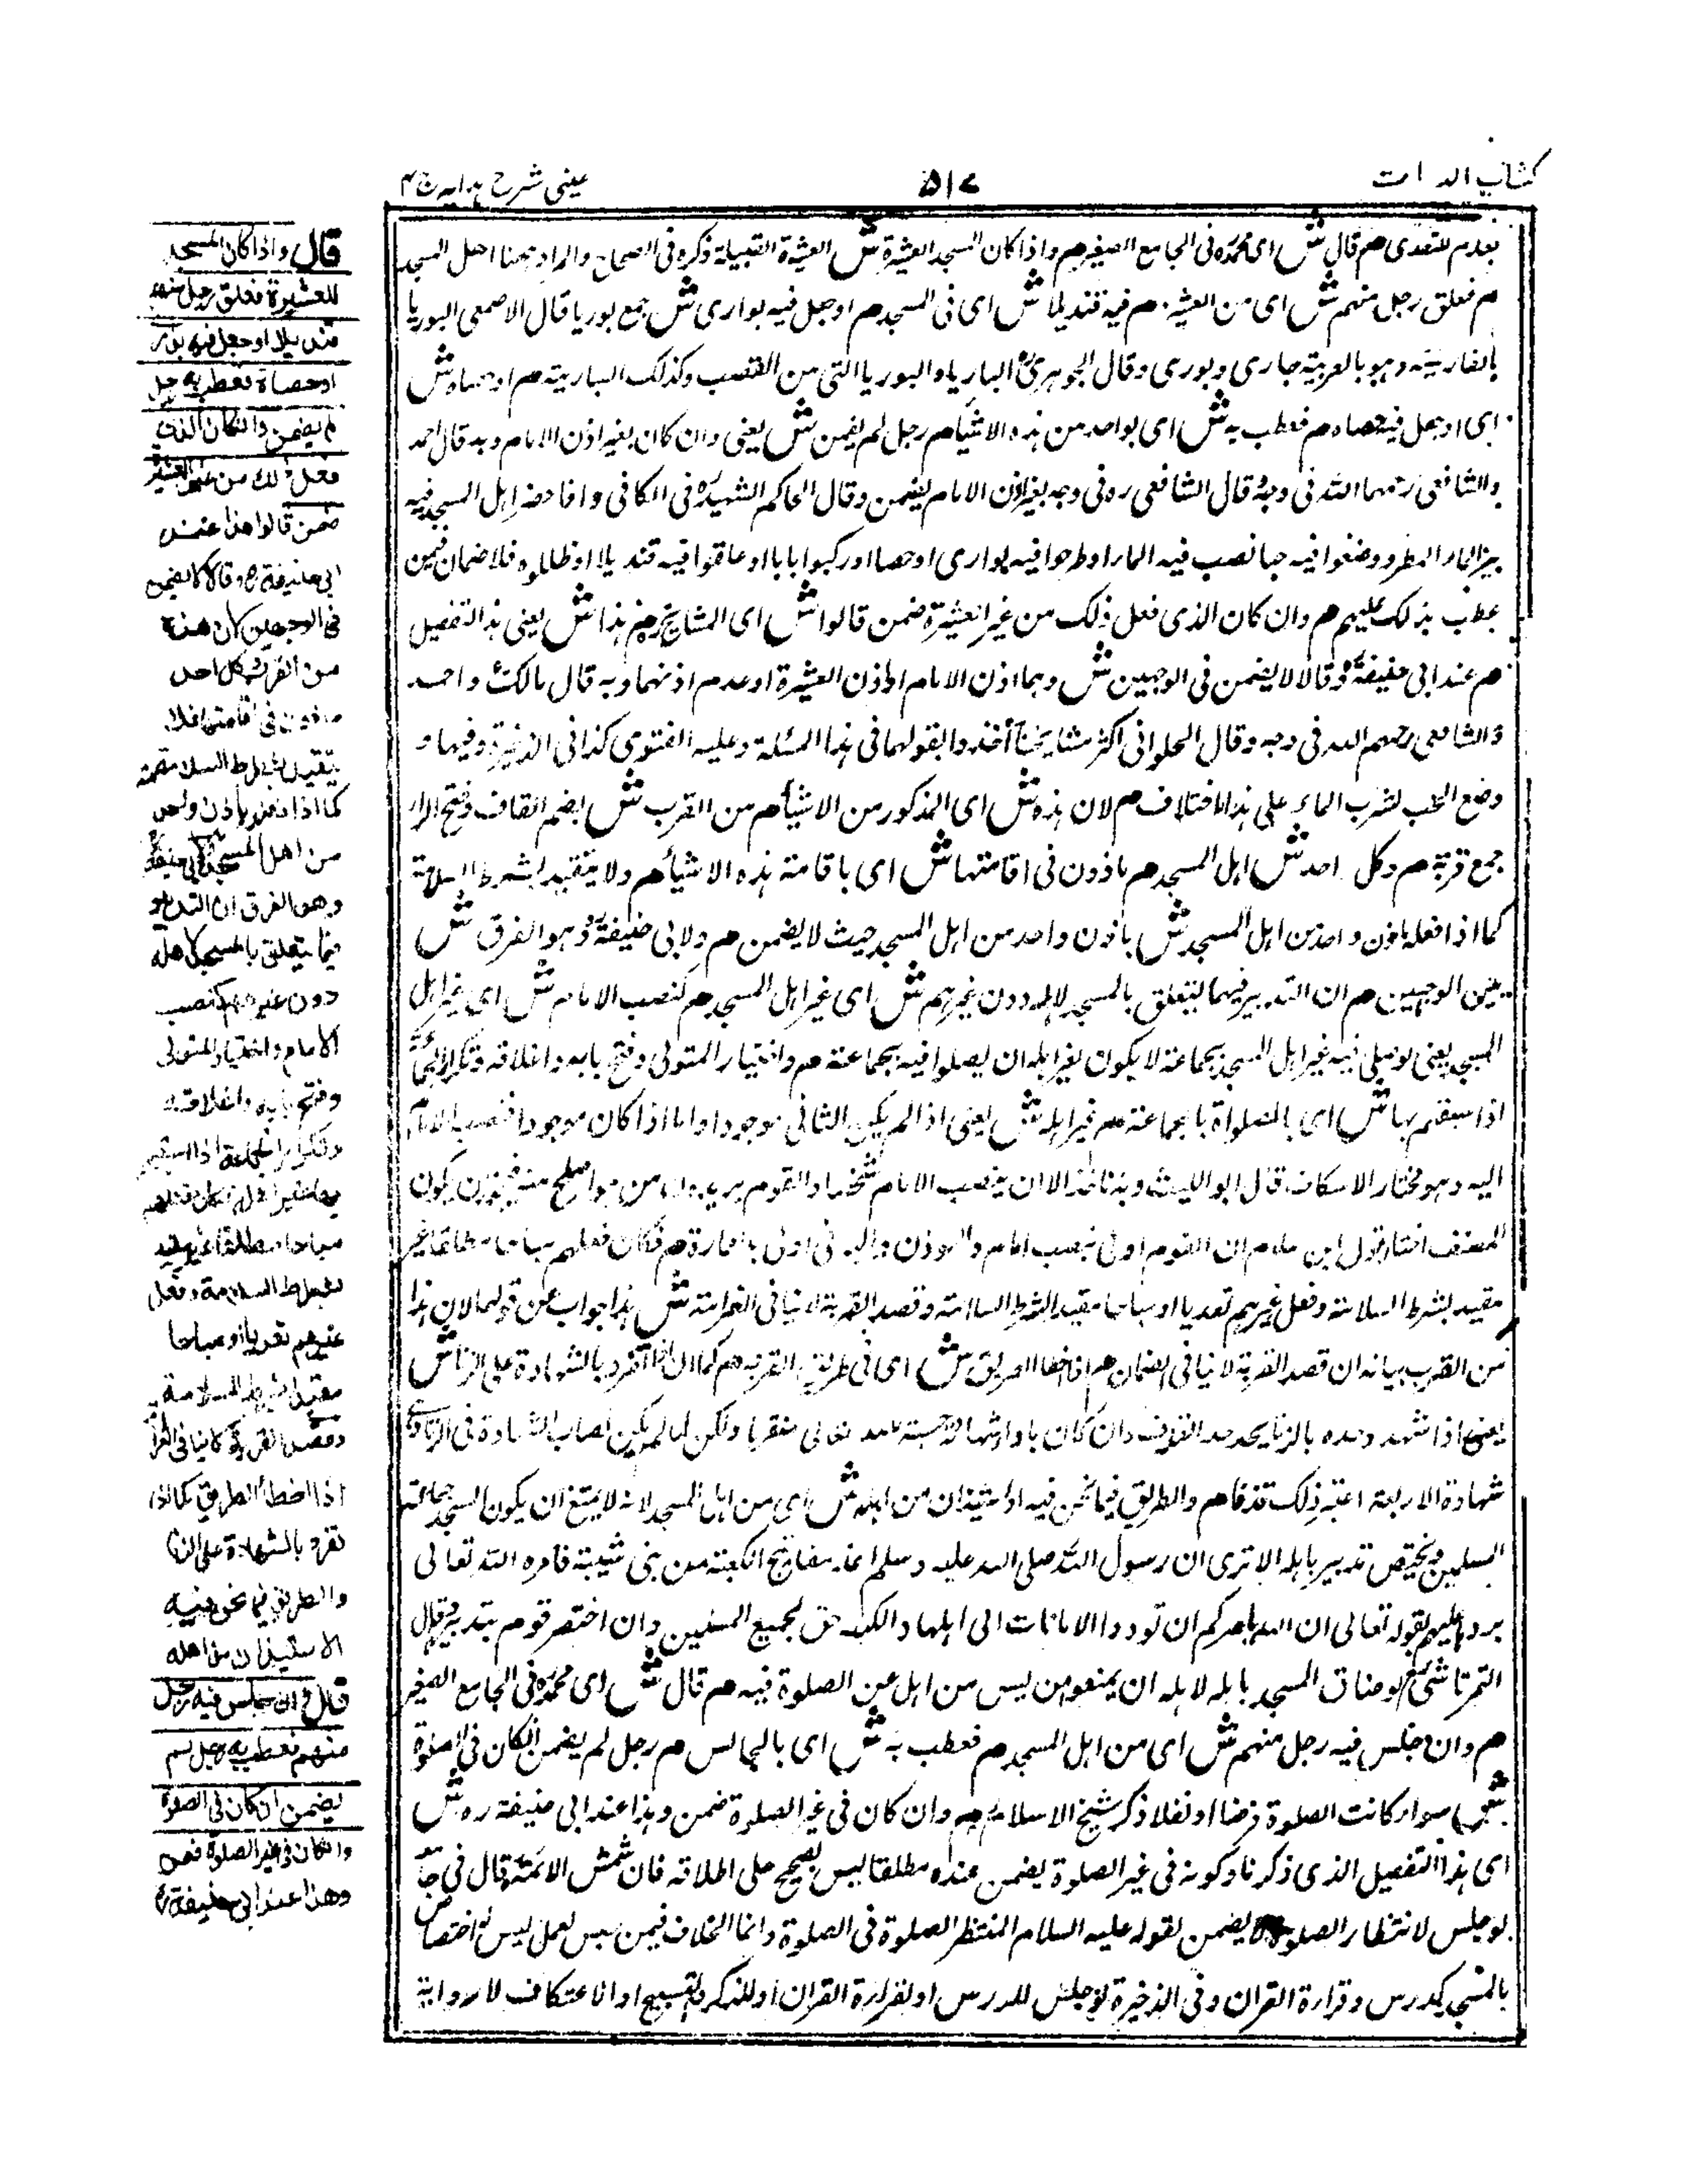 كتاب الد ات
۵۱۷
عینی شرح ہدایہ ج ۴
بعدم التعدی م قال ش ای محمدؒ فی الجامع الصغیر م واذا کان المسجد للعشیرة ش العشیرة القبیلة ذکره فی الصحاح والمراد ههنا اهل المسجد
م فعلق رجل منهم ش ای من العشیرة م فیه قندیلا ش ای فی المسجد م او جعل فیه بواری ش جمع بوریا قال الاصمعی البوریا
بالفارسیة وهو بالعربیة باری وبوری وقال الجوهری الباریاء والبوریا التی من القصب وکذلک الباریة م او حصاه ش
ای او جعل فیه حصاه م فعطب به ش ای بواحد من هذه الاشیاء م رجل لم یضمن ش یعنی وان کان بغیر اذن الامام وبه قال احمد
والشافعی رحمهما الله فی وجه وقال الشافعی ره فی وجه بغیر اذن الامام یضمن وقال الحاکم الشهید ره فی الکافی واذا حضر اهل المسجد فیه
بیرا لماء المطر ووضعوا فیه حبا نصب فیه الماء او طرحوا فیه بواری او حصا او رکبوا بابا او علقوا فیه قندیلا او ظللوه فلا ضمان فیمن
عطب بذلک علیهم م وان کان الذی فعل ذلک من غیر العشیرة ضمن قالوا ش ای المشایخ م هذا ش یعنی هذا التفصیل
م عند ابی حنیفةؒ وقالا لا یضمن فی الوجهین ش وهما اذن الامام او اذن العشیرة او عدم اذنهما وبه قال مالکؒ واحمد
والشافعی رحمهم الله فی وجه وقال الحلوانی اکثر مشایخنا اخذوا بقولهما فی هذا المسئلة وعلیه الفتوی کذا فی الذخیرة وفیها و
وضع الحب لشرب الماء علی هذا الاختلاف م لان هذه ش ای المذکور من الاشیاء م من القرب ش بضم القاف وفتح الراء
جمع قربة م وکل احد ش اهل المسجد م ماذون فی اقامتها ش ای باقامة هذه الاشیاء م ولا یتقید بشرط السلامة
کما اذا فعله باذن واحد من اهل المسجد ش باذن واحد من اهل المسجد حیث لا یضمن م ولابی حنیفةؒ وهو الفرق ش
بین الوجهین م ان التدبیر فیما یتعلق بالمسجد لاهله دون غیرهم ش ای غیر اهل المسجد م کنصب الامام ش ای غیر اهل
المسجد یعنی لو صلی فیه غیر اهل المسجد بجماعة لا یکون لغیر اهله ان یصلوا فیه بجماعة م واختیار المتولی وفتح بابه واغلاقه وتکرار الجماعة
اذا سبقهم بها ش ای بالصلواة بالجماعة م غیر اهله ش یعنی اذا لم یکن الثانی موجودا واما اذا کان موجودا فنصب الامام
الیه وهو مختار الاسکاف قال ابو اللیث وبه ناخذ الا ان ینصب الامام شخصا والقوم یریدون من هو اصلح منه فیجوز ان یکون
المصنف اختار قول ابن سلام ان القوم اولی بنصب امام والموذن والبانی اولی بالعمارة م فکان فعلهم مباحا مطلقا غیر
مقید بشرط السلامة وفعل غیرهم تعدیا او مباحا مقیدا بشرط السلامة وقصد القربة لا ینافی الغرامة ش هذا جواب عن قولهما لان هذا
من القرب بیانه ان قصد القربة لا ینافی الضمان م اذا اخطا الطریق ش ای فی طریق القربة م کما اذا تفرد بالشهادة علی الزنا ش
یعنی اذا شهد وحده بالزنا یحد حد القذف وان کان باداء شهادة حسبة لله تعالی متقربا ولکن لما لم یکن نصاب الشهادة فی الزنا
شهادة الاربعة اعتبر ذلک قذفا م والطریق فیما نحن فیه الاستیذان من اهله ش ای من اهل المسجد لانه لا یمتنع ان یکون المسجد لجماعة
المسلمین ویختص تدبیر باهله الا تری ان رسول الله صلی الله علیه وسلم اخذ مفاتیح الکعبة من بنی شیبة فامره الله تعالی
بردها الیهم بقوله تعالی ان الله یامرکم ان تودوا الامانات الی اهلها والکعبة حق لجمیع المسلمین وان اختصر قوم بتدبیر قال
التمرتاشی لو ضاق المسجد باهله لاهله ان یمنعوا من لیس من اهله عن الصلوة فیه م قال ش ای محمدؒ فی الجامع الصغیر
م وان جلس فیه رجل منهم ش ای من اهل المسجد م فعطب به ش ای بالجالس م رجل لم یضمن ان کان فی الصلوة
ش سواء کانت الصلوة فرضا او نفلا ذکر شیخ الاسلام م وان کان فی غیر الصلوة ضمن وهذا عند ابی حنیفة ره ش
ای هذا التفصیل الذی ذکرنا وکونه فی غیر الصلوة یضمن عنده مطلقا لیس بصحیح علی اطلاقه فان شمس الائمة قال فی جامعه
لو جلس لانتظار الصلوة لا یضمن لقوله علیه السلام المنتظر الصلوة فی الصلوة وانما الخلاف فیمن جلس لعمل لیس له اختصاص
بالمسجد کدرس وقراءة القران وفی الذخیرة لو جلس للدرس او لقراءة القران او للذکر والتسبیح او الاعتکاف لا روایة
قال واذا کان المسجد
للعشیرة فعلق رجل منهم
قندیلا او جعل فیه بواری
او حصاة فعطب به رجل
لم یضمن وان کان الذی
فعل ذلک من غیر العشیرة
ضمن قالوا هذا عند
ابی حنیفة وقالا لا یضمن
فی الوجهین لان هذه
من القرب وکل احد
ماذون فی اقامتها فلا
یتقید بشرط السلامة
کما اذا فعله باذن واحد
من اهل المسجد ولابی حنیفة
وهو الفرق ان التدبیر
فیما یتعلق بالمسجد لاهله
دون غیرهم کنصب
الامام واختیار المتولی
وفتح بابه واغلاقه
وتکرار الجماعة اذا سبقهم
بها غیر اهله فکان فعلهم
مباحا مطلقا غیر مقید
بشرط السلامة وفعل
غیرهم تعدیا او مباحا
مقیدا بشرط السلامة
وقصد القربة لا ینافی الغرامة
اذا اخطأ الطریق کما اذا
تفرد بالشهادة علی الزنا
والطریق فیما نحن فیه
الاستیذان من اهله
قال وان جلس فیه رجل
منهم فعطب به رجل لم
یضمن ان کان فی الصلوة
وان کان فی غیر الصلوة ضمن
وهذا عند ابی حنیفة